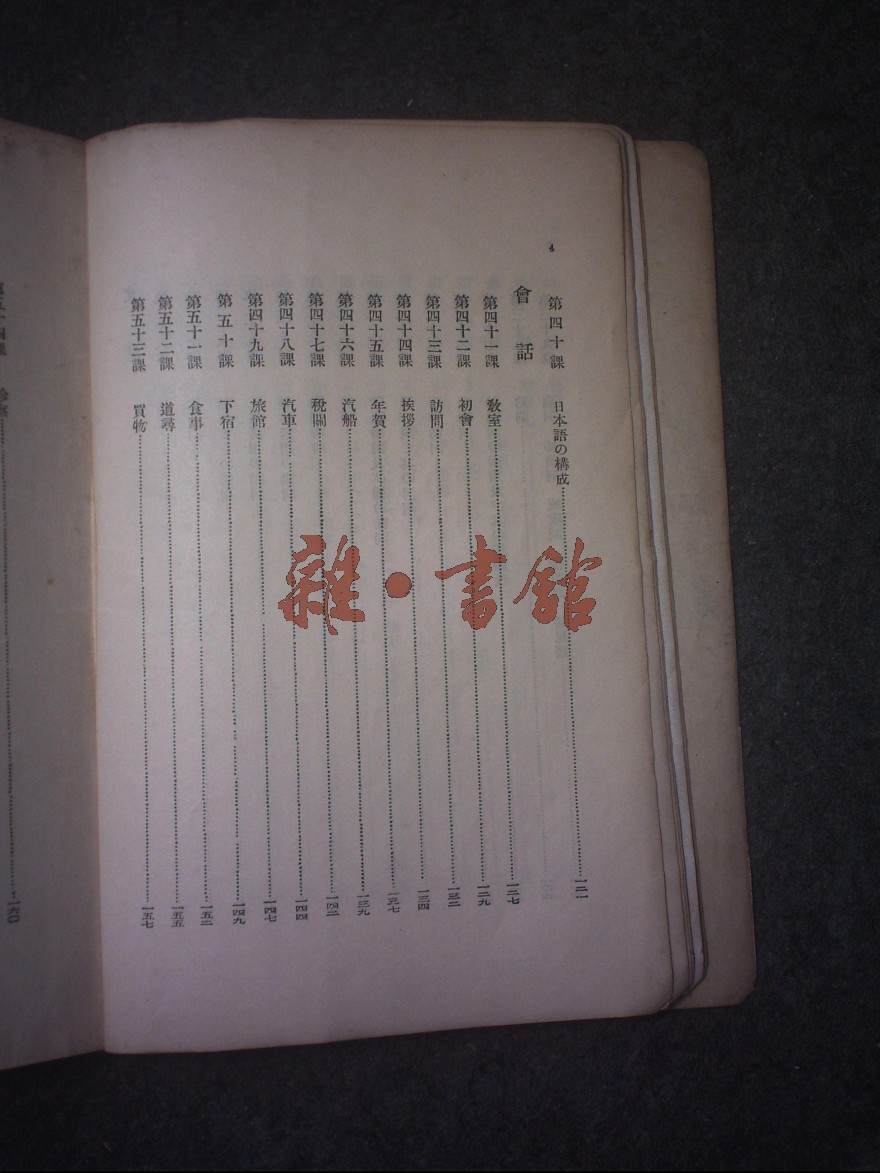 4
第四十課 日本語の構成……一二一
會話
第四十一課 教室……一二七
第四十二課 初會……一二九
第四十三課 訪問……一三二
第四十四課 挨拶……一三四
第四十五課 年賀……一三七
第四十六課 汽船……一三九
第四十七課 稅關……一四二
第四十八課 汽車……一四四
第四十九課 旅館……一四七
第五十課 下宿……一四九
第五十一課 食事……一五二
第五十二課 道尋……一五五
第五十三課 買物……一五七
一六〇
雜・書館